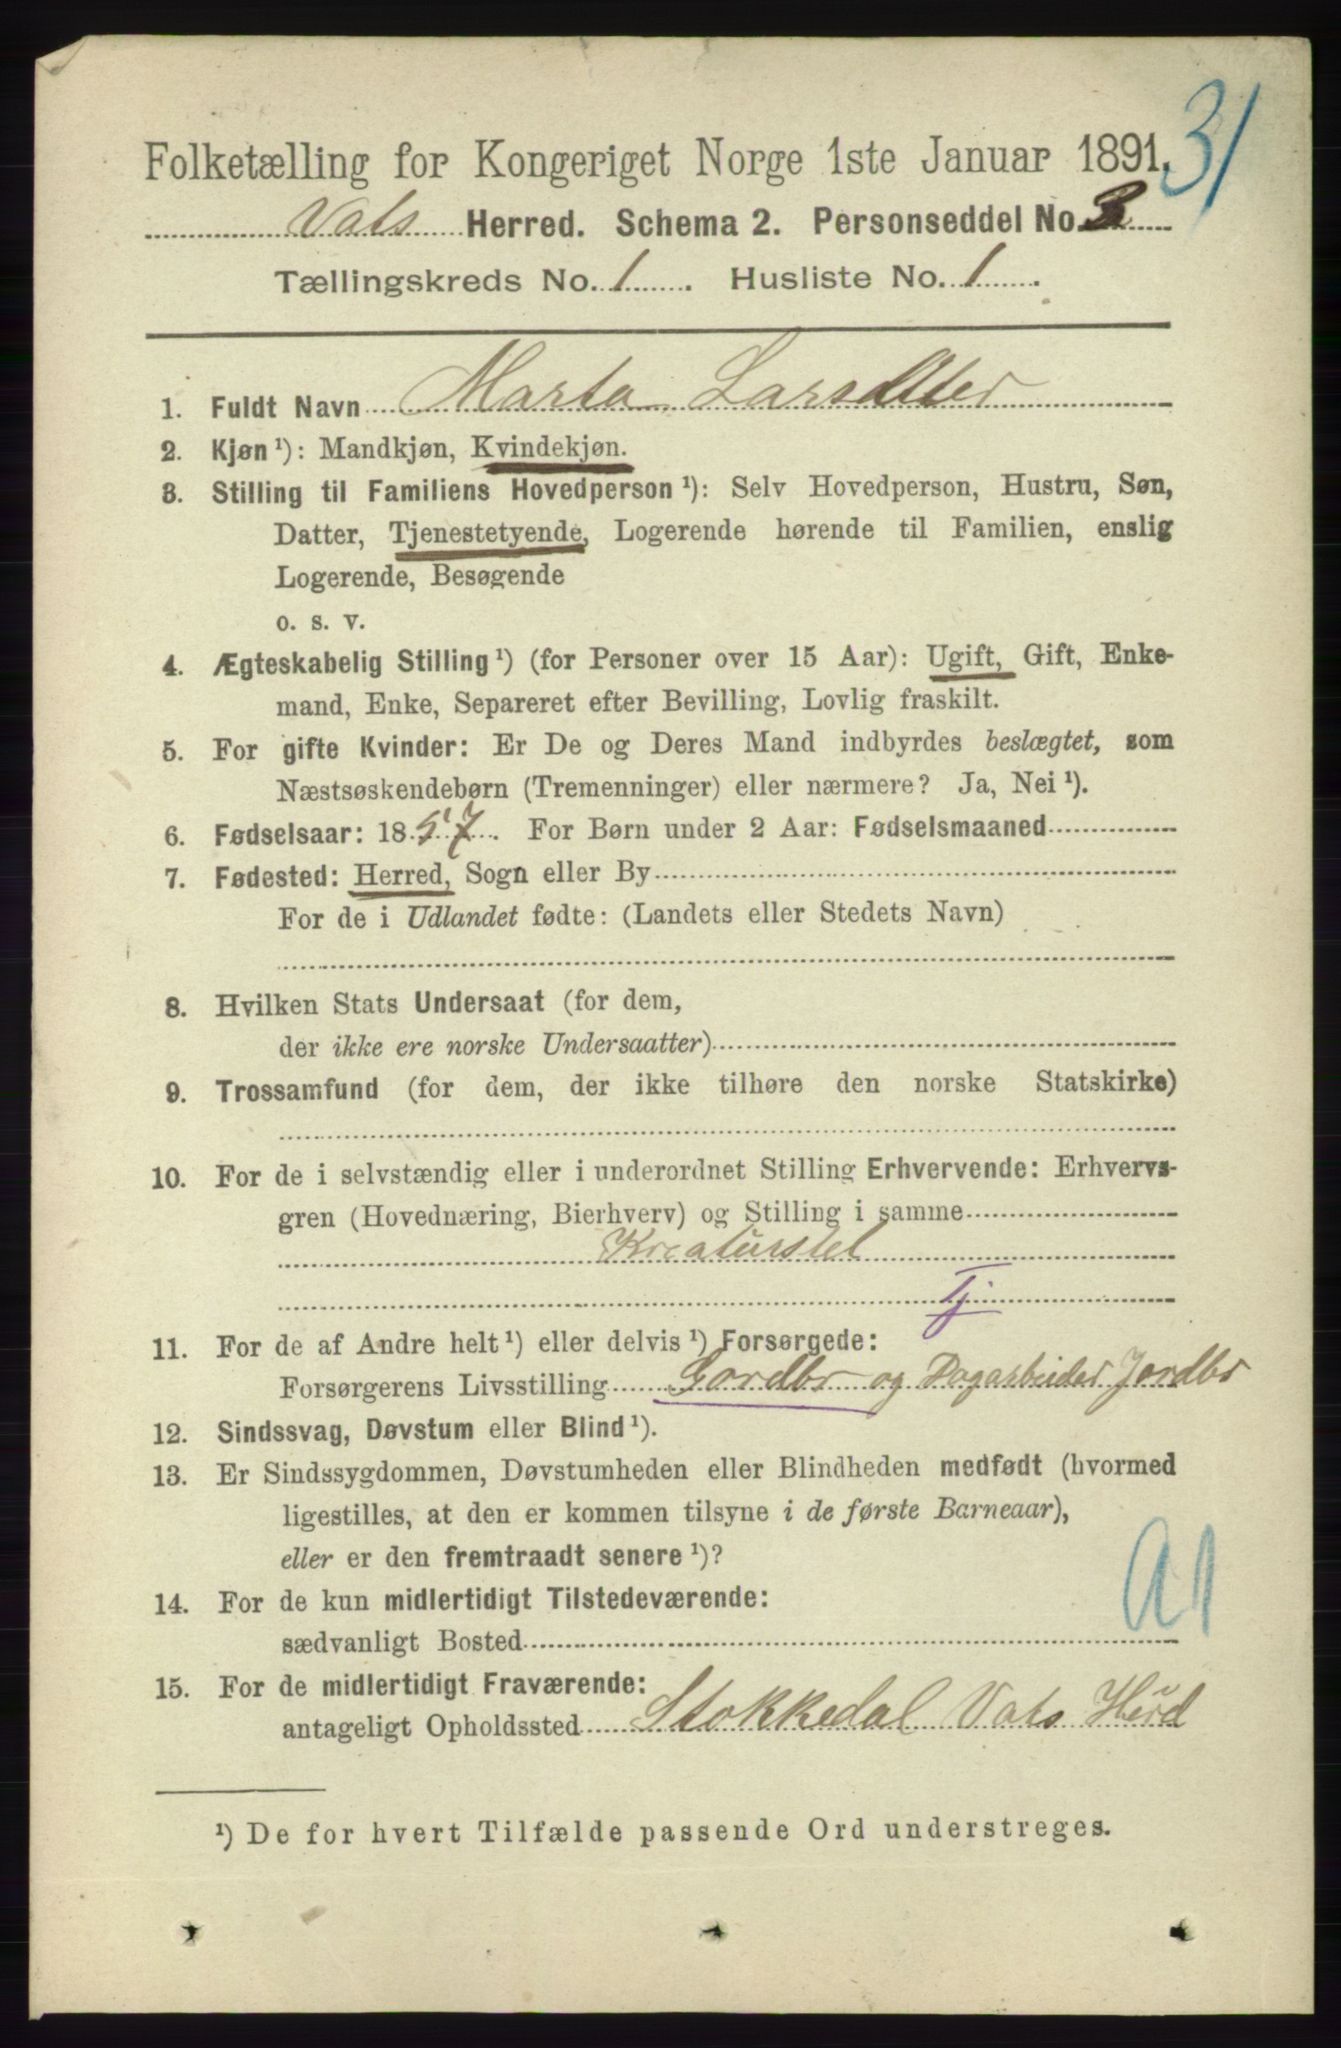 31
Folketælling for Kongeriget Norge 1ste Januar 1891.
Vats Herred. Schema 2. Personseddel No.
Tællingskreds No. 1. Husliste No. 1.
1. Fuldt Navn Marta Larsdtter
2. Kjøn ¹): Mandkjøn, Kvindekjøn.
3. Stilling til Familiens Hovedperson ¹): Selv Hovedperson, Hustru, Søn,
Datter, Tjenestetyende, Logerende hørende til Familien, enslig
Logerende, Besøgende
o. s. v.
4. Ægteskabelig Stilling ¹) (for Personer over 15 Aar): Ugift, Gift, Enke-
mand, Enke, Separeret efter Bevilling, Lovlig fraskilt.
5. For gifte Kvinder: Er De og Deres Mand indbyrdes beslægtet, som
Næstsøskendebørn (Tremenninger) eller nærmere? Ja, Nei ¹).
6. Fødselsaar: 1857. For Børn under 2 Aar: Fødselsmaaned
7. Fødested: Herred, Sogn eller By
For de i Udlandet fødte: (Landets eller Stedets Navn)
8. Hvilken Stats Undersaat (for dem,
der ikke ere norske Undersaatter)
9. Trossamfund (for dem, der ikke tilhøre den norske Statskirke)
10. For de i selvstændig eller i underordnet Stilling Erhvervende: Erhvervs-
gren (Hovednæring, Bierhverv) og Stilling i samme
Kreaturstel
Tj
11. For de af Andre helt ¹) eller delvis ¹) Forsørgede:
Forsørgerens Livsstilling Gardbr og Dagarbeider Jordbr
12. Sindssvag, Døvstum eller Blind ¹).
13. Er Sindssygdommen, Døvstumheden eller Blindheden medfødt (hvormed
ligestilles, at den er kommen tilsyne i de første Barneaar),
eller er den fremtraadt senere ¹)?
a1
14. For de kun midlertidigt Tilstedeværende:
sædvanligt Bosted
15. For de midlertidigt Fraværende:
antageligt Opholdssted Stokkedal Vats Herd
¹) De for hvert Tilfælde passende Ord understreges.